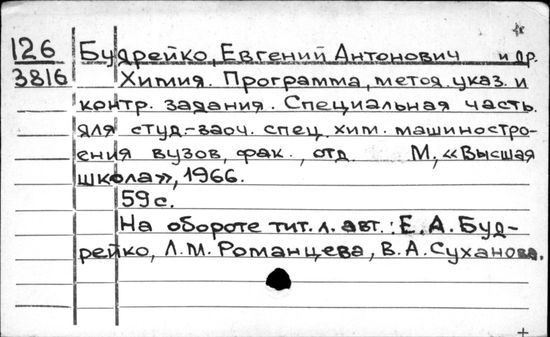 126 Будрейко, Евгений Антонович и др.
3816 Химия. Программа, метод. указ. и
контр. задания. Специальная часть.
для студ-заоч. спец. хим. машиностро-
ения вузов, фак., отд М, «Высшая
школа», 1966.
59 с.
На обороте тит. л. авт.: Е. А. Буд-
рейко, Л. М. Романцева, В. А. Суханова.